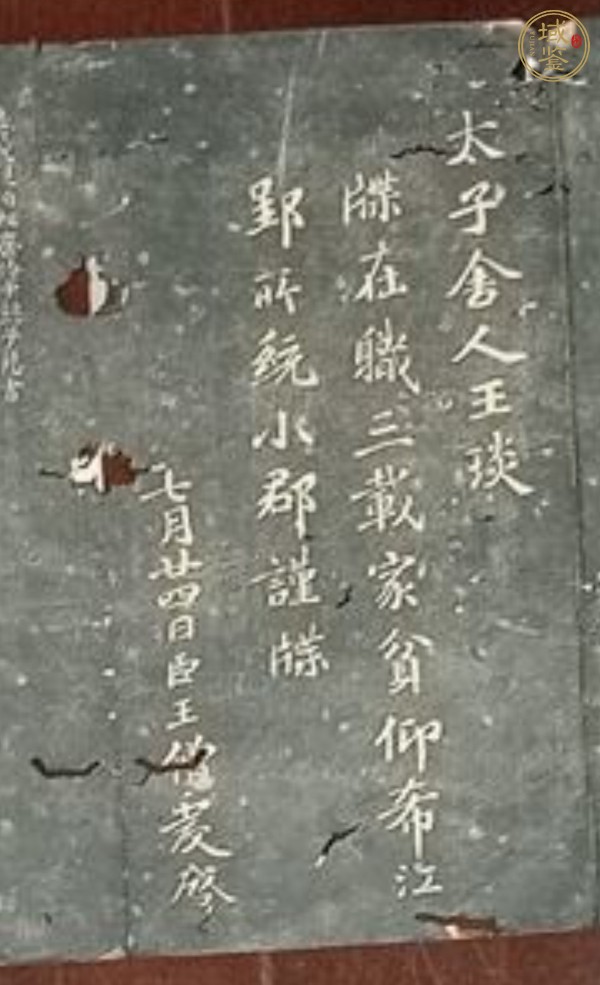 域鑒
太子舍人王琰
牒在職三載家貧仰希江
郢所統小郡謹牒
七月廿四日臣王僧虔啓